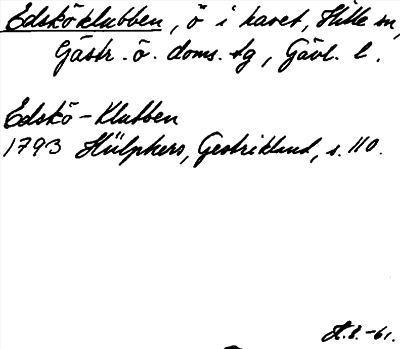 Edsköklubben, ö i havet, Hille sn,
Gästr. ö. doms. tg, Gävl. l.
Edskö-Klubben
1793 Hülphers, Gestrikland, s. 110.
H.S.-61.